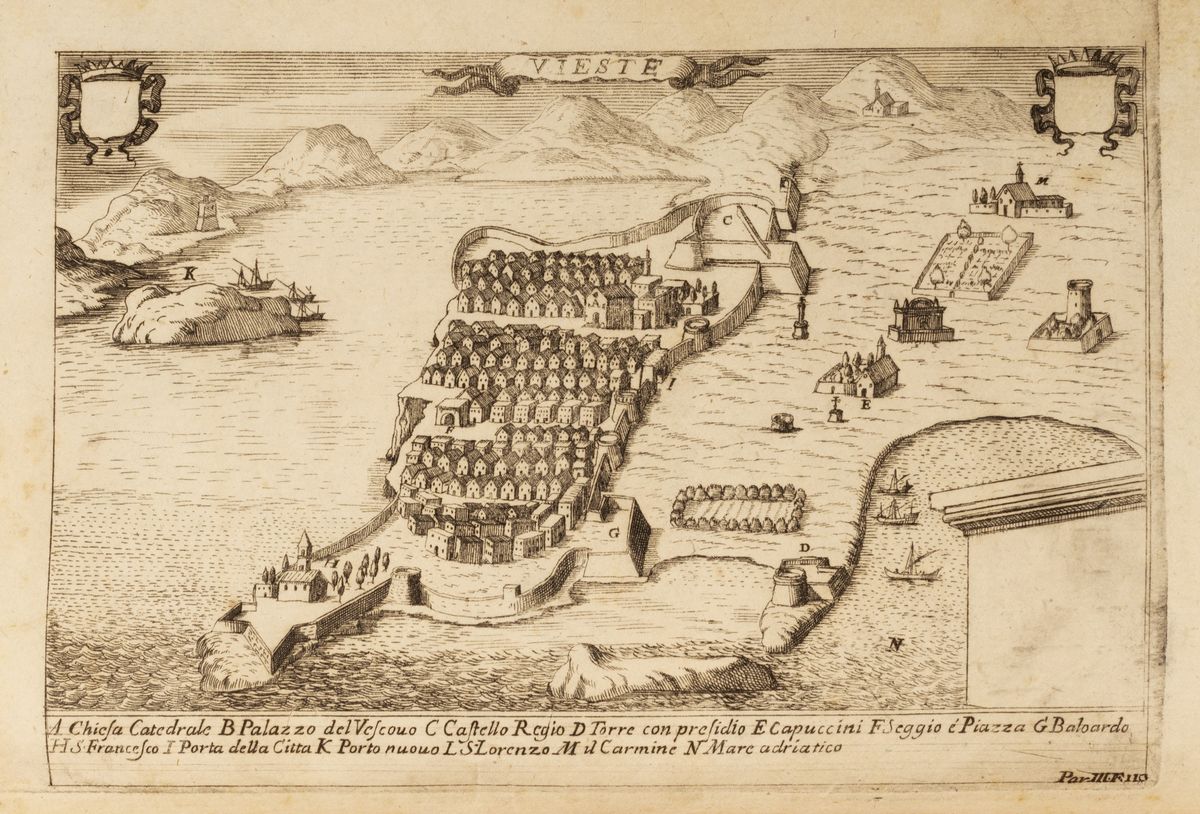 VIESTE
K
M
C
I
E
F
G
D
N
A Chiesa Catedrale B Palazzo del Vescouo C Castello Regio D Torre con presidio E Capuccini F Seggio é Piazza G Baloardo
H S. Francesco I Porta della Citta K Porto nuouo L S Lorenzo M il Carmine N Mare adriatico
Par. III. F. 110